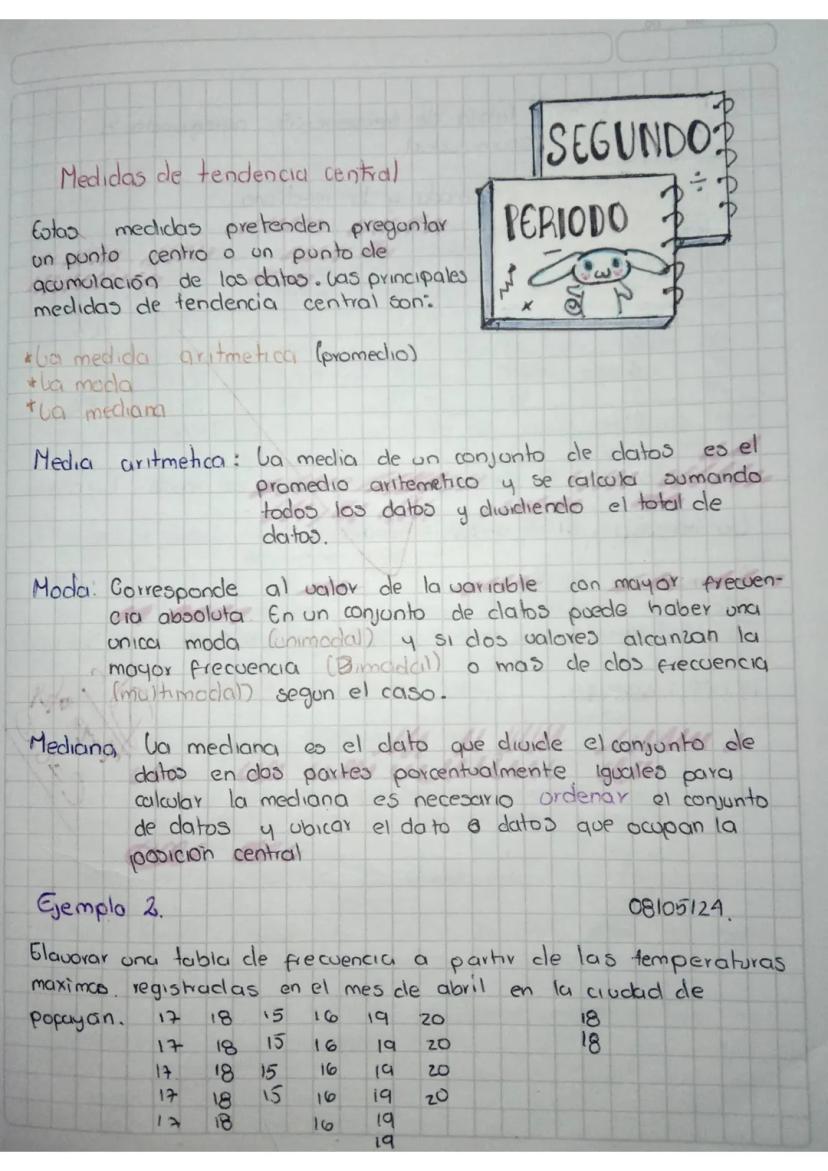 SEGUNDO
PERIODO
Medidas de tendencia central
Estas medidas pretenden pregontar
un punto centro o un punto de
acumulación de los datos. Las principales
medidas de tendencia central son:
*La medida aritmetica (promedio)
*La moda
*La mediana
Media aritmetica: La media de un conjunto de datos es el
promedio aritemetico y se calcula sumando
todos los datos y dividiendo el total de
datos.
Moda: Corresponde al valor de la variable con mayor frecuen-
cia absoluta En un conjunto de datos puede haber una
unica moda (unimodal) y si dos valores alcanzan la
mayor frecuencia (Bimodal) o mas de dos frecuencia
(multimodal) segun el caso.
Mediana La mediana es el dato que divide el conjunto de
datos en dos partes porcentualmente iguales para
calcular la mediana es necesario ordenar el conjunto
de datos y ubicar el dato o datos que ocupan la
posicion central
Ejemplo 2. 08/05/24.
Elavorar una tabla de frecuencia a partir de las temperaturas
maximas registradas en el mes de abril en la ciudad de
popayan. 17 18 15 16 19 20 18
17 18 15 16 19 20 18
17 18 15 16 19 20
17 18 15 16 19 20
17 18 16 19
19